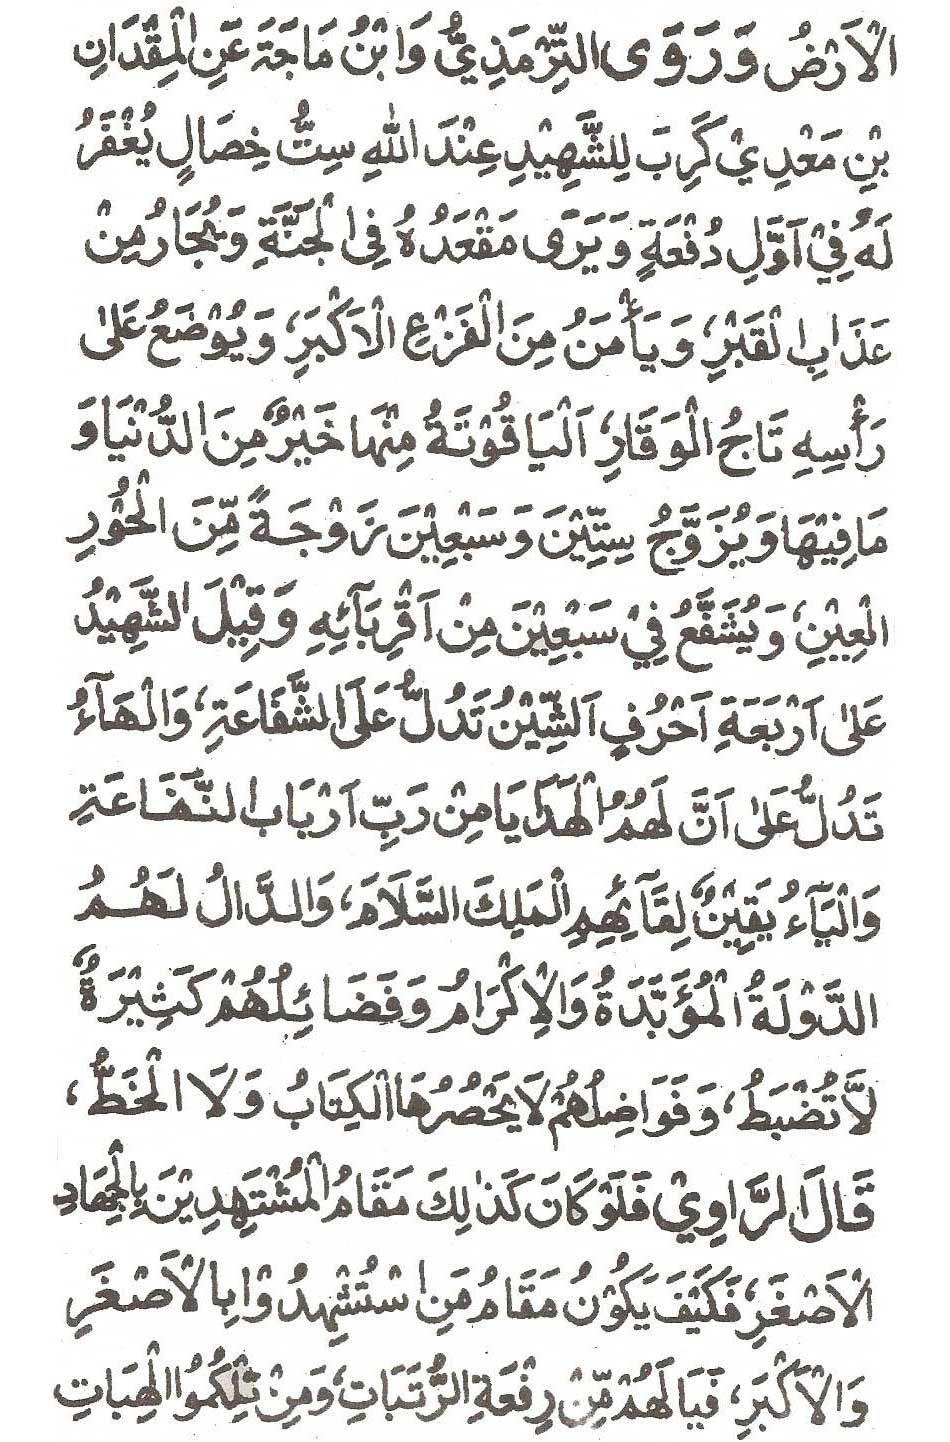 الْاَرْضُ وَرَوَى التِّرْمَذِيُّ وَابْنُ مَاجَةَ عَنِ الْمِقْدَانِ
بْنِ مَعْدِيْ كَرِبَ لِلشَّهِيْدِ عِنْدَ اللّٰهِ سِتُّ خِصَالٍ يُغْفَرُ
لَهُ فِيْ اَوَّلِ دُفْعَةٍ وَيَرَى مَقْعَدُهُ فِي الْجَنَّةِ وَيُجَارُ مِنْ
عَذَابِ الْقَبْرِ، وَيَأْمَنُ مِنَ الْفَزْعِ الْاَكْبَرِ، وَيُوْضَعُ عَلٰى
رَأْسِهِ تَاجُ الْوَقَارِ، اَلْيَاقُوْتَةُ مِنْهَا خَيْرٌ مِنَ الدُّنْيَا وَ
مَا فِيْهَا وَيُزَوَّجُ سِتِّيْنَ وَسَبَعِيْنَ زَوْجَةً مِّنَ الْحُوْرِ
الْعِيْنِ، وَيُشَفَّعُ فِيْ سَبْعِيْنَ مِنْ اَقْرِبَآئِهِ وَقِيْلَ الشَّهِيْدُ
عَلٰى اَرْبَعَةِ اَحْرُفٍ اَلشِّيْنُ تَدُلُّ عَلَى الشَّفَاعَةِ، وَالْهَآءُ
تَدُلُّ عَلٰى اَنَّ لَهُمُ الْهَدَايَا مِنْ رَبِّ اَرْبَابِ النَّفَاعَةِ
وَالْيَآءُ يَقِيْنٌ لِقَآئِهِمِ الْمَلِكَ السَّلَامَ، وَالدَّالُ لَهُمُ
الدَّوْلَةُ الْمُؤَبَّدَةُ وَالْاِكْرَامُ وَفَضَائِلُهُمْ كَثِيْرَةٌ
لَّا تُضْبَطُ، وَفَوَاضِلُهُمْ لَا يَحْصُرُهَا الْكِتَابُ وَلَا الْخَطُّ،
قَالَ الرَّاوِيْ فَلَوْ كَانَ كَذٰلِكَ مَقَامُ الْمُشْتَهِدِيْنَ بِالْجِهَادِ
الْاَصْغَرِ، فَكَيْفَ يَكُوْنُ مَقَامُ مَنِ اسْتُشْهِدُوْا بِالْاَصْغَرِ
وَالْاَكْبَرِ، فَيَا لَهُمْ مِّنْ رِفْعَةِ الرُّتَبَاتِ، وَمِنْ تِلْكُمُوا الْهِبَاتِ